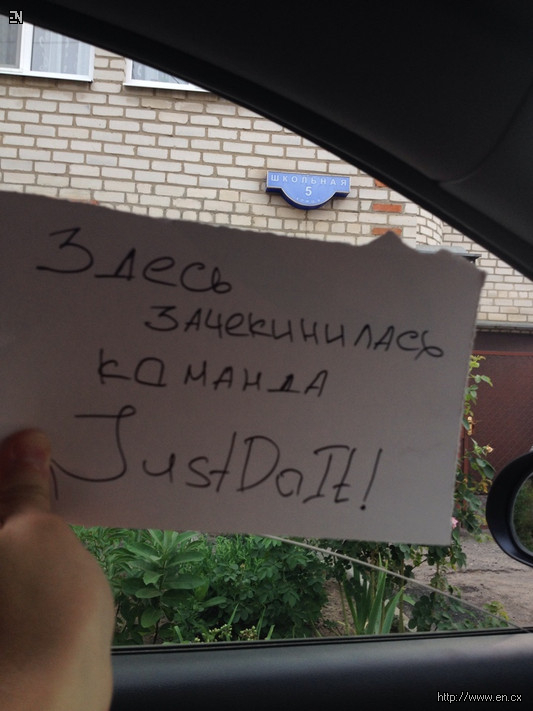 EN
ШКОЛЬНАЯ
5
Здесь
зачекинилась
команда
JustDoIt!
http://www.en.cx